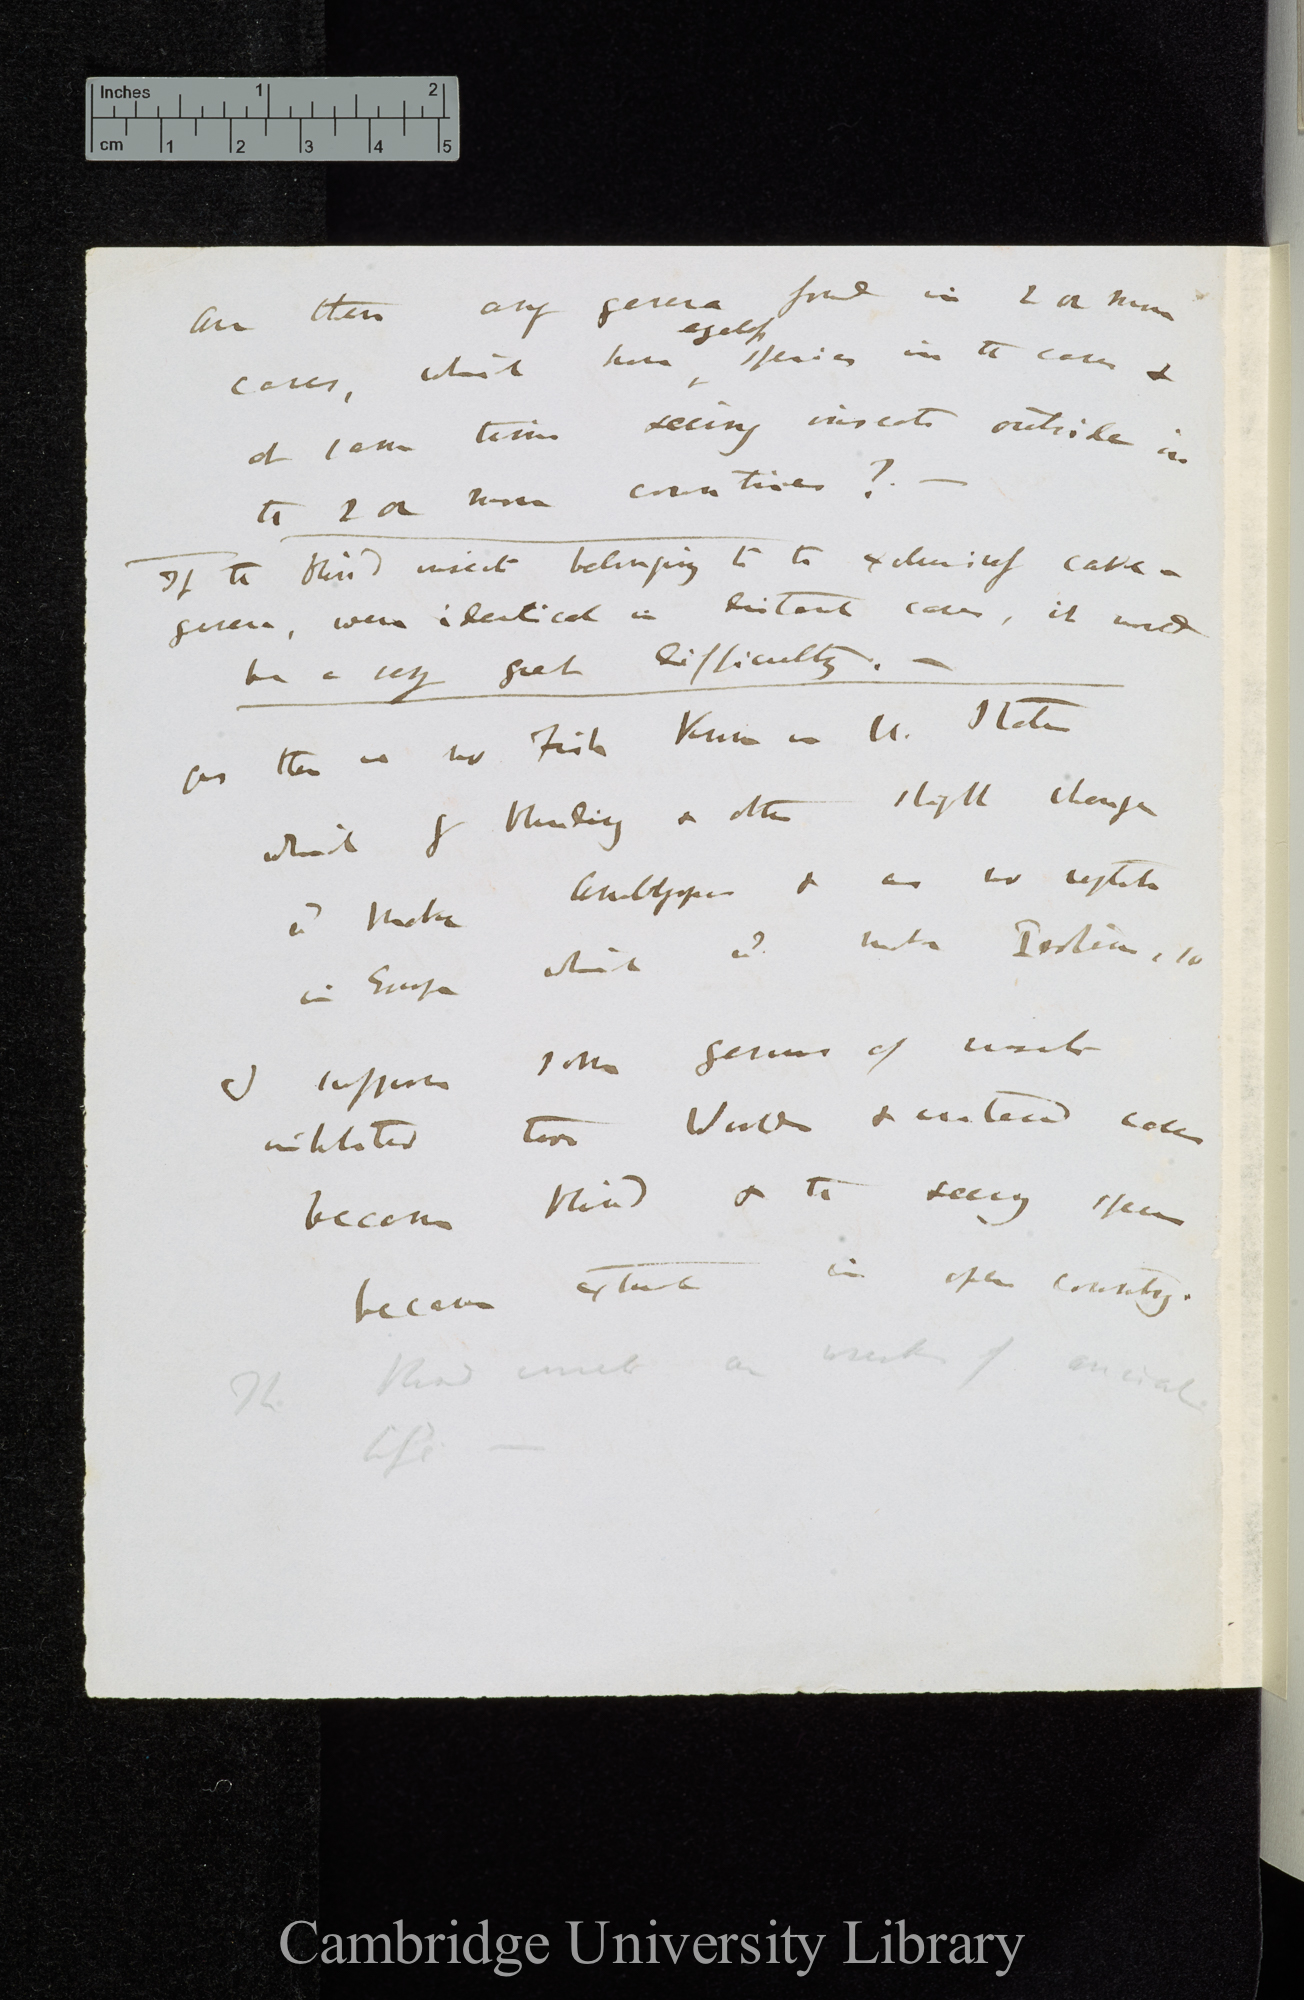 Inches 1 2
cm 1 2 3 4 5
Are there any genera found in 2 or more
eyeless
caves, which have species in the caves &
at same time seeing insects outside in
the 2 or more countries? —
If the blind insects belonging to the exclusively cave-
genera, were identical in distant caves, it would
be a very great difficulty. —
As there is no Fish known in U. States
which by blinding & other slight changes
wd make Amblyopsis & as no reptile
in Europe which wd. make Proteus, so
I suppose some genus of insects
inhabited two Worlds & entered caves
became blind & the seeing species
became extinct in open country.
The Blind insects are wrecks of ancient
life —
Cambridge University Library